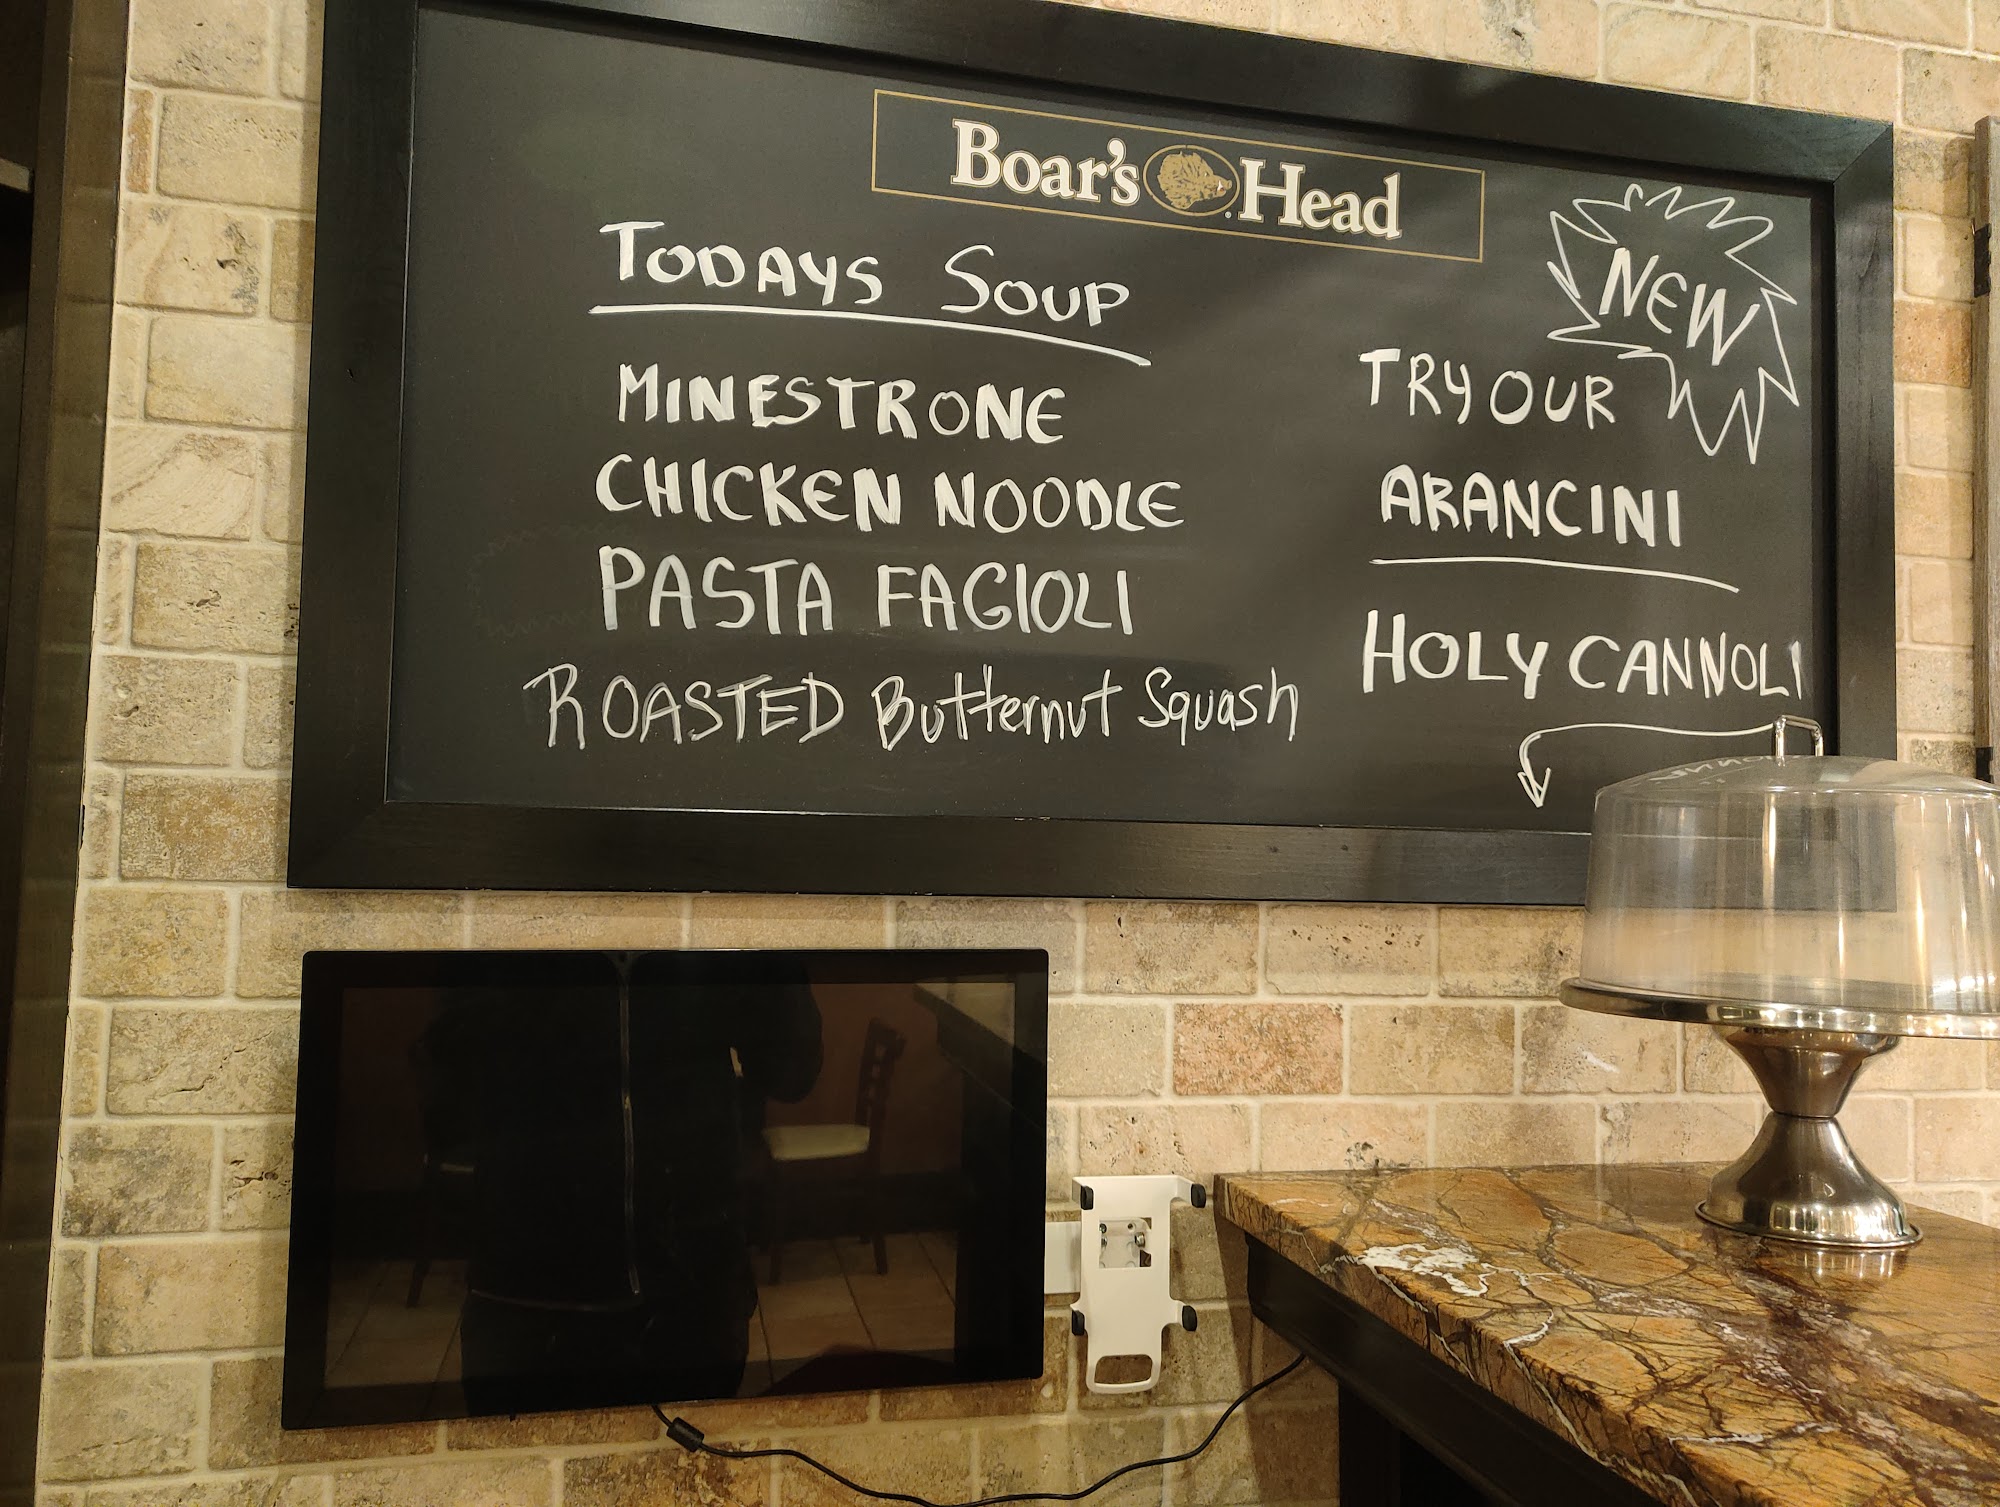 Boar's Head
TODAYS SOUP
MINESTRONE
CHICKEN NOODLE
PASTA FAGIOLI
ROASTED Butternut Squash
NEW
TRY OUR
ARANCINI
HOLY CANNOLI